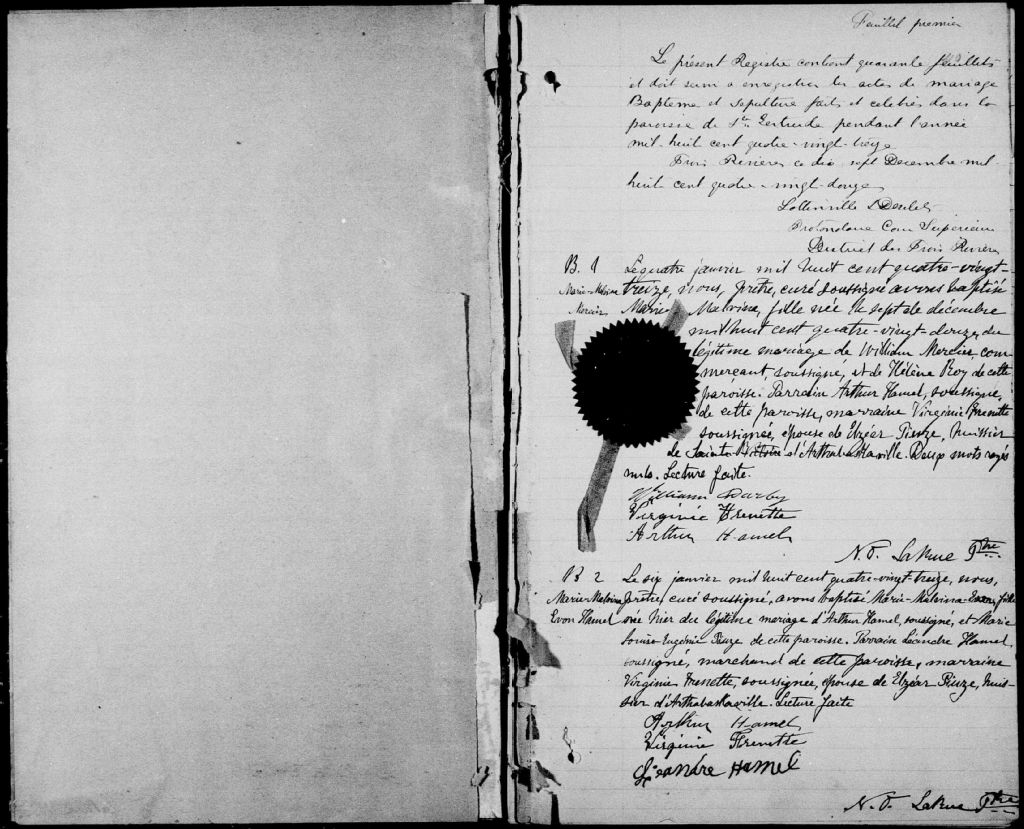 Feuillet premier
Le présent Registre contient quarante feuillets
et doit servir a enregistrer les actes de mariage
Bapteme et sepulture faits et celebrés dans la
paroisse de Ste Gertrude pendant l'année
mil-huit cent quatre-vingt-treize
Trois Rivières ce dix sept Decembre mil-
huit cent quatre-vingt-douze
Protonotaire Cour Superieure
District des Trois Rivières
B. 1 Le quatre janvier mil huit cent quatre-vingt-
Marie-Malvina treize, nous, prêtre, curé soussigné avons baptisé
Mercier Marie Malvina, fille née le sept de décembre
mil huit cent quatre-vingt-douze, du
légitime mariage de William Mercier, com-
merçant, soussigné, et de Hélène Roy de cette
paroisse. Parrain Arthur Hamel, soussigné,
de cette paroisse, marraine Virginie Frenette
soussignée, épouse de Elzéar Pieuze, huissier
de Sainte-Victoire d'Arthabaskaville. Deux mots rayés
nuls. Lecture faite.
William
Virginie Frenette
Arthur Hamel
N. O. LaRue Ptre
B 2 Le six janvier mil huit cent quatre-vingt-treize, nous,
Marie-Malvina prêtre, curé soussigné, avons baptisé Marie-Malvina fille
Evon Hamel née hier du légitime mariage d'Arthur Hamel, soussigné, et Marie
Louise Eugénie Pieuze de cette paroisse. Parrain Léandre Hamel,
soussigné, marchand de cette paroisse, marraine
Virginie Frenette, soussignée, épouse de Elzéar Pieuze, huis-
sier d'Arthabaskaville. Lecture faite
Arthur Hamel
Virginie Frenette
Léandre Hamel
N. O. LaRue Ptre